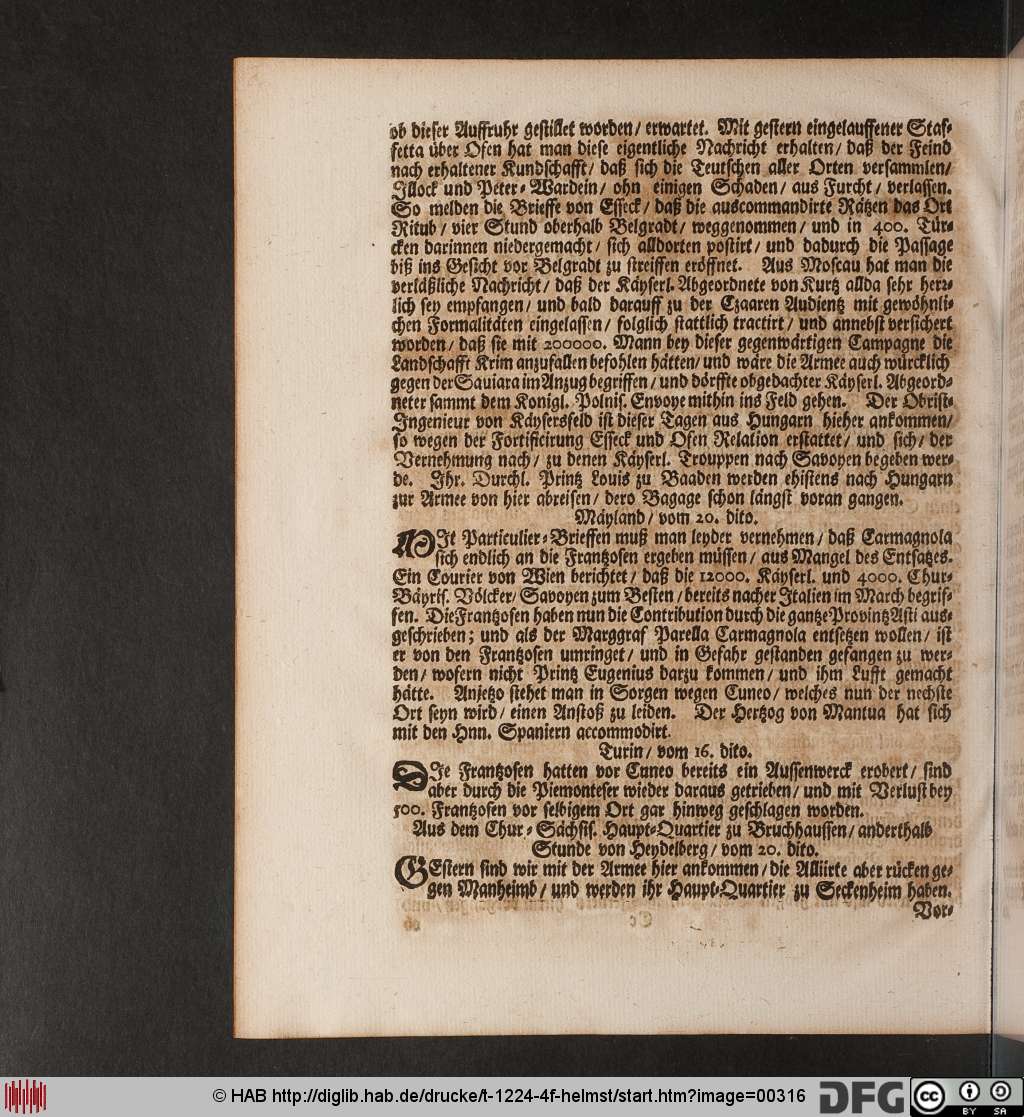 ob dieser Auffruhr gestillet worden / erwartet. Mit gestern eingelauffener Staf-
fetta über Ofen hat man diese eigentliche Nachricht erhalten / daß der Feind
nach erhaltener Kundschafft / daß sich die Teutschen aller Orten versammlen /
Jllock und Peter-Wardein / ohn einigen Schaden / aus Furcht / verlassen.
So melden die Brieffe von Esseck / daß die auscommandirte Rätzen das Ort
Ritub / vier Stund oberhalb Belgradt / weggenommen / und in 400. Tür-
cken darinnen niedergemacht / sich alldorten postirt / und dadurch die Passage
biß ins Gesicht vor Belgradt zu streiffen eröffnet. Aus Moscau hat man die
verläßliche Nachricht / daß der Käyserl. Abgeordnete von Kurtz allda sehr herz-
lich sey empfangen / und bald darauff zu der Czaaren Audientz mit gewöhnli-
chen Formalitäten eingelassen / folglich stattlich tractirt / und annebst versichert
worden / daß sie mit 200000. Mann bey dieser gegenwärtigen Campagne die
Landschafft Krim anzufallen befohlen hätten / und wäre die Armee auch würcklich
gegen der Sauiara im Anzug begriffen / und dörffte obgedachter Käyserl. Abgeord-
neter sammt dem Konigl. Polnis. Envoye mithin ins Feld gehen. Der Obrist-
Ingenieur von Käysersfeld ist dieser Tagen aus Hungarn hieher ankommen /
so wegen der Fortificirung Esseck und Ofen Relation erstattet / und sich / der
Vernehmung nach / zu denen Käyserl. Trouppen nach Savoyen begeben wer-
de. Ihr. Durchl. Printz Louis zu Baaden werden ehistens nach Hungarn
zur Armee von hier abreisen / dero Bagage schon längst voran gangen.
Mäyland / vom 20. dito.
MIt Particulier-Brieffen muß man leyder vernehmen / daß Carmagnola
sich endlich an die Frantzosen ergeben müssen / aus Mangel des Entsatzes.
Ein Courier von Wien berichtet / daß die 12000. Käyserl. und 4000. Chur-
Bäyris. Völcker / Savoyen zum Besten / bereits nacher Italien im March begrif-
fen. Die Frantzosen haben nun die Contribution durch die gantze Provintz Asti aus-
geschrieben; und als der Marggraf Parella Carmagnola entsetzen wollen / ist
er von den Frantzosen umringet / und in Gefahr gestanden gefangen zu wer-
den / wofern nicht Printz Eugenius darzu kommen / und ihm Lufft gemacht
hätte. Anjetzo stehet man in Sorgen wegen Cuneo / welches nun der nechste
Ort seyn wird / einen Anstoß zu leiden. Der Hertzog von Mantua hat sich
mit den Hnn. Spaniern accommodirt.
Turin / vom 16. dito.
DIe Frantzosen hatten vor Cuneo bereits ein Aussenwerck erobert / sind
aber durch die Piemonteser wieder daraus getrieben / und mit Verlust bey
500. Frantzosen vor selbigem Ort gar hinweg geschlagen worden.
Aus dem Chur-Sächsis. Haupt-Quartier zu Bruchhaussen / anderthalb
Stunde von Heydelberg / vom 20. dito.
GEstern sind wir mit der Armee hier ankommen / die Alliirte aber rücken ge-
gen Manheimb / und werden ihr Haupt-Quartier zu Seckenheim haben.
Vor-
© HAB http://diglib.hab.de/drucke/t-1224-4f-helmst/start.htm?image=00316
DFG
cc BY SA